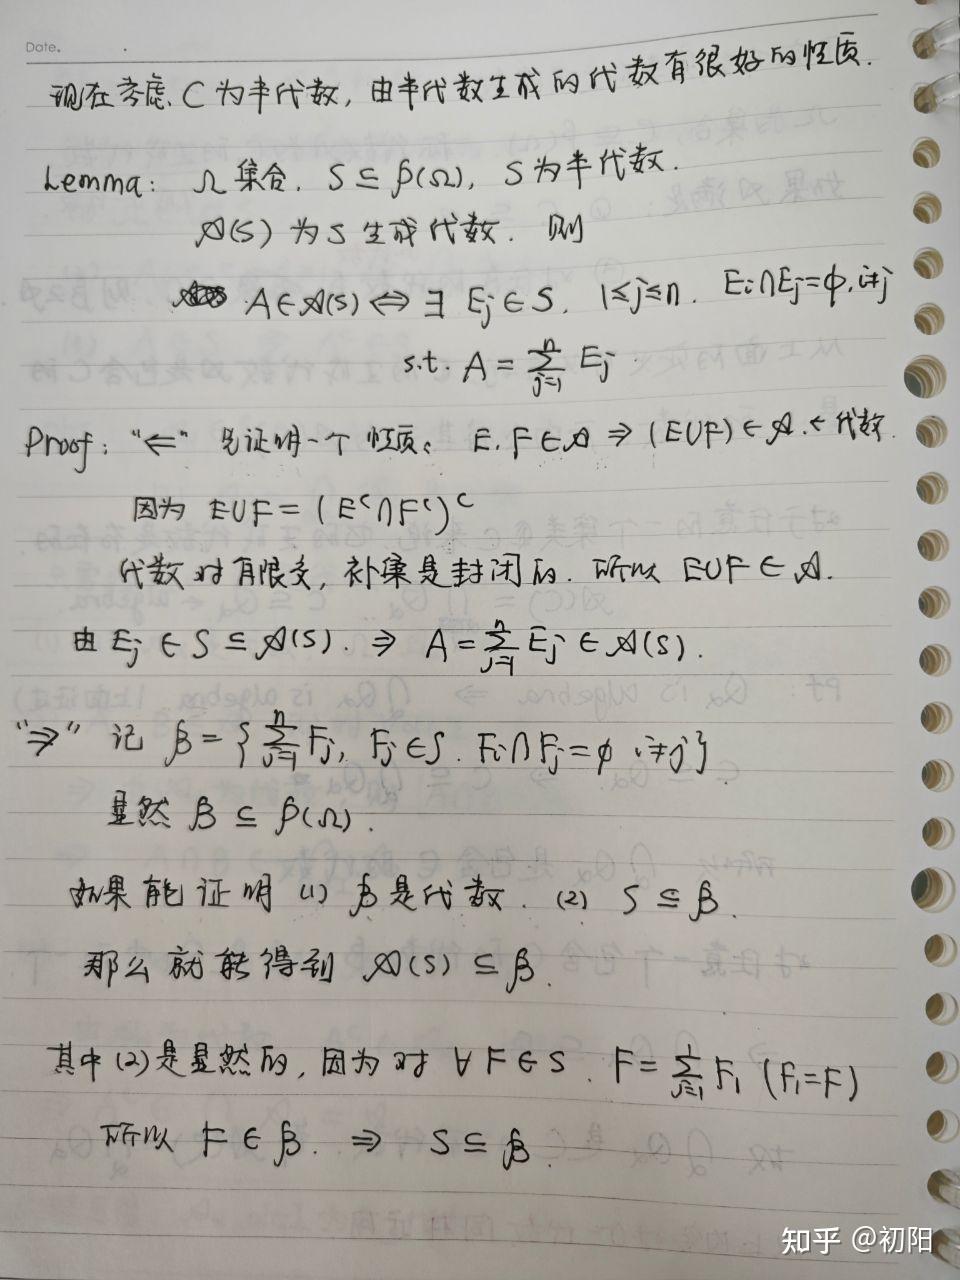 Date.
现在考虑 C 为半代数, 由半代数生成的代数有很好的性质.
Lemma: Ω 集合. S ⊆ P(Ω), S 为半代数.
A(S) 为 S 生成代数. 则
A ∈ A(S) ⇔ ∃ Ej ∈ S. 1≤j≤n. Ei∩Ej=φ, i≠j
s.t. A = ∑_{j=1}^{n} Ej
Proof: "⇐" 先证明一个性质: E, F ∈ A ⇒ (E∪F) ∈ A. ← 代数
因为 E∪F = (E^c∩F^c)^c
代数对有限交, 补集是封闭的. 所以 E∪F ∈ A.
由 Ej ∈ S ⊆ A(S). ⇒ A = ∑_{j=1}^{n} Ej ∈ A(S).
"⇒" 记 β = { ∑_{j=1}^{n} Fj, Fj ∈ S. Fi∩Fj=φ i≠j }
显然 β ⊆ P(Ω).
如果能证明 (1) β 是代数. (2) S ⊆ β.
那么就能得到 A(S) ⊆ β.
其中 (2) 是显然的, 因为对 ∀ F ∈ S. F = ∑_{j=1}^{1} F1 (F1=F)
所以 F ∈ β. ⇒ S ⊆ β.
知乎 @初阳